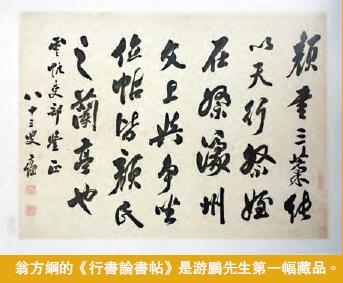 顏書三藁純
以天行祭姪
在祭濠州
文上與爭坐
位帖皆顏氏
之蘭亭也
雲帆吏部鑒正
八十三叟方綱
翁方綱的《行書論書帖》是游鵬先生第一幅藏品。